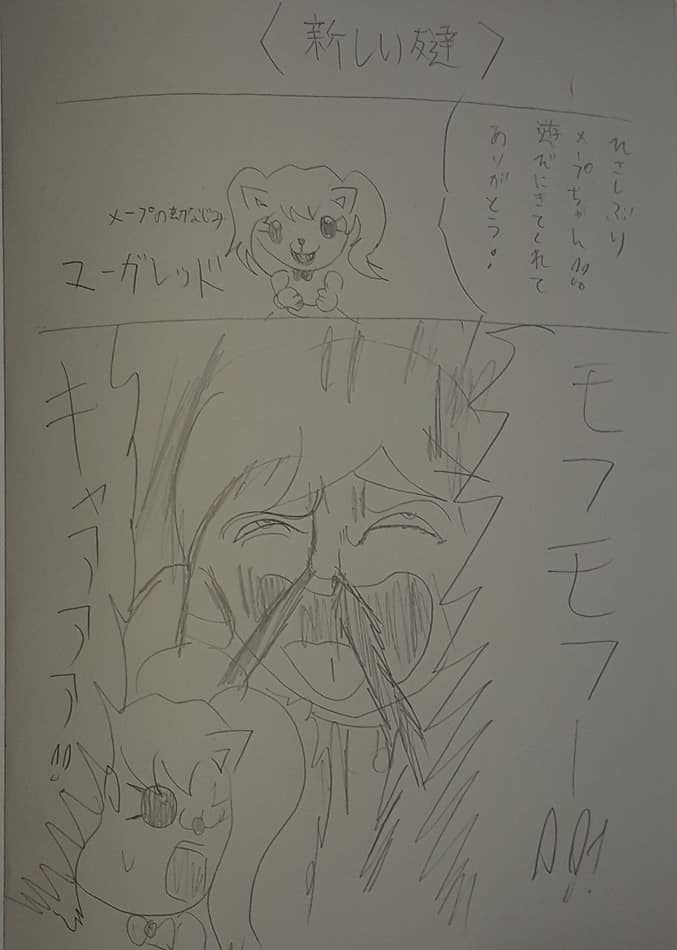 〈新しい友達〉
ひさしぶり
メープちゃん!!
遊びにきてくれて
ありがとう!
メープの幼なじみ
マーガレッド
モフモフー!!
キャアアア!!